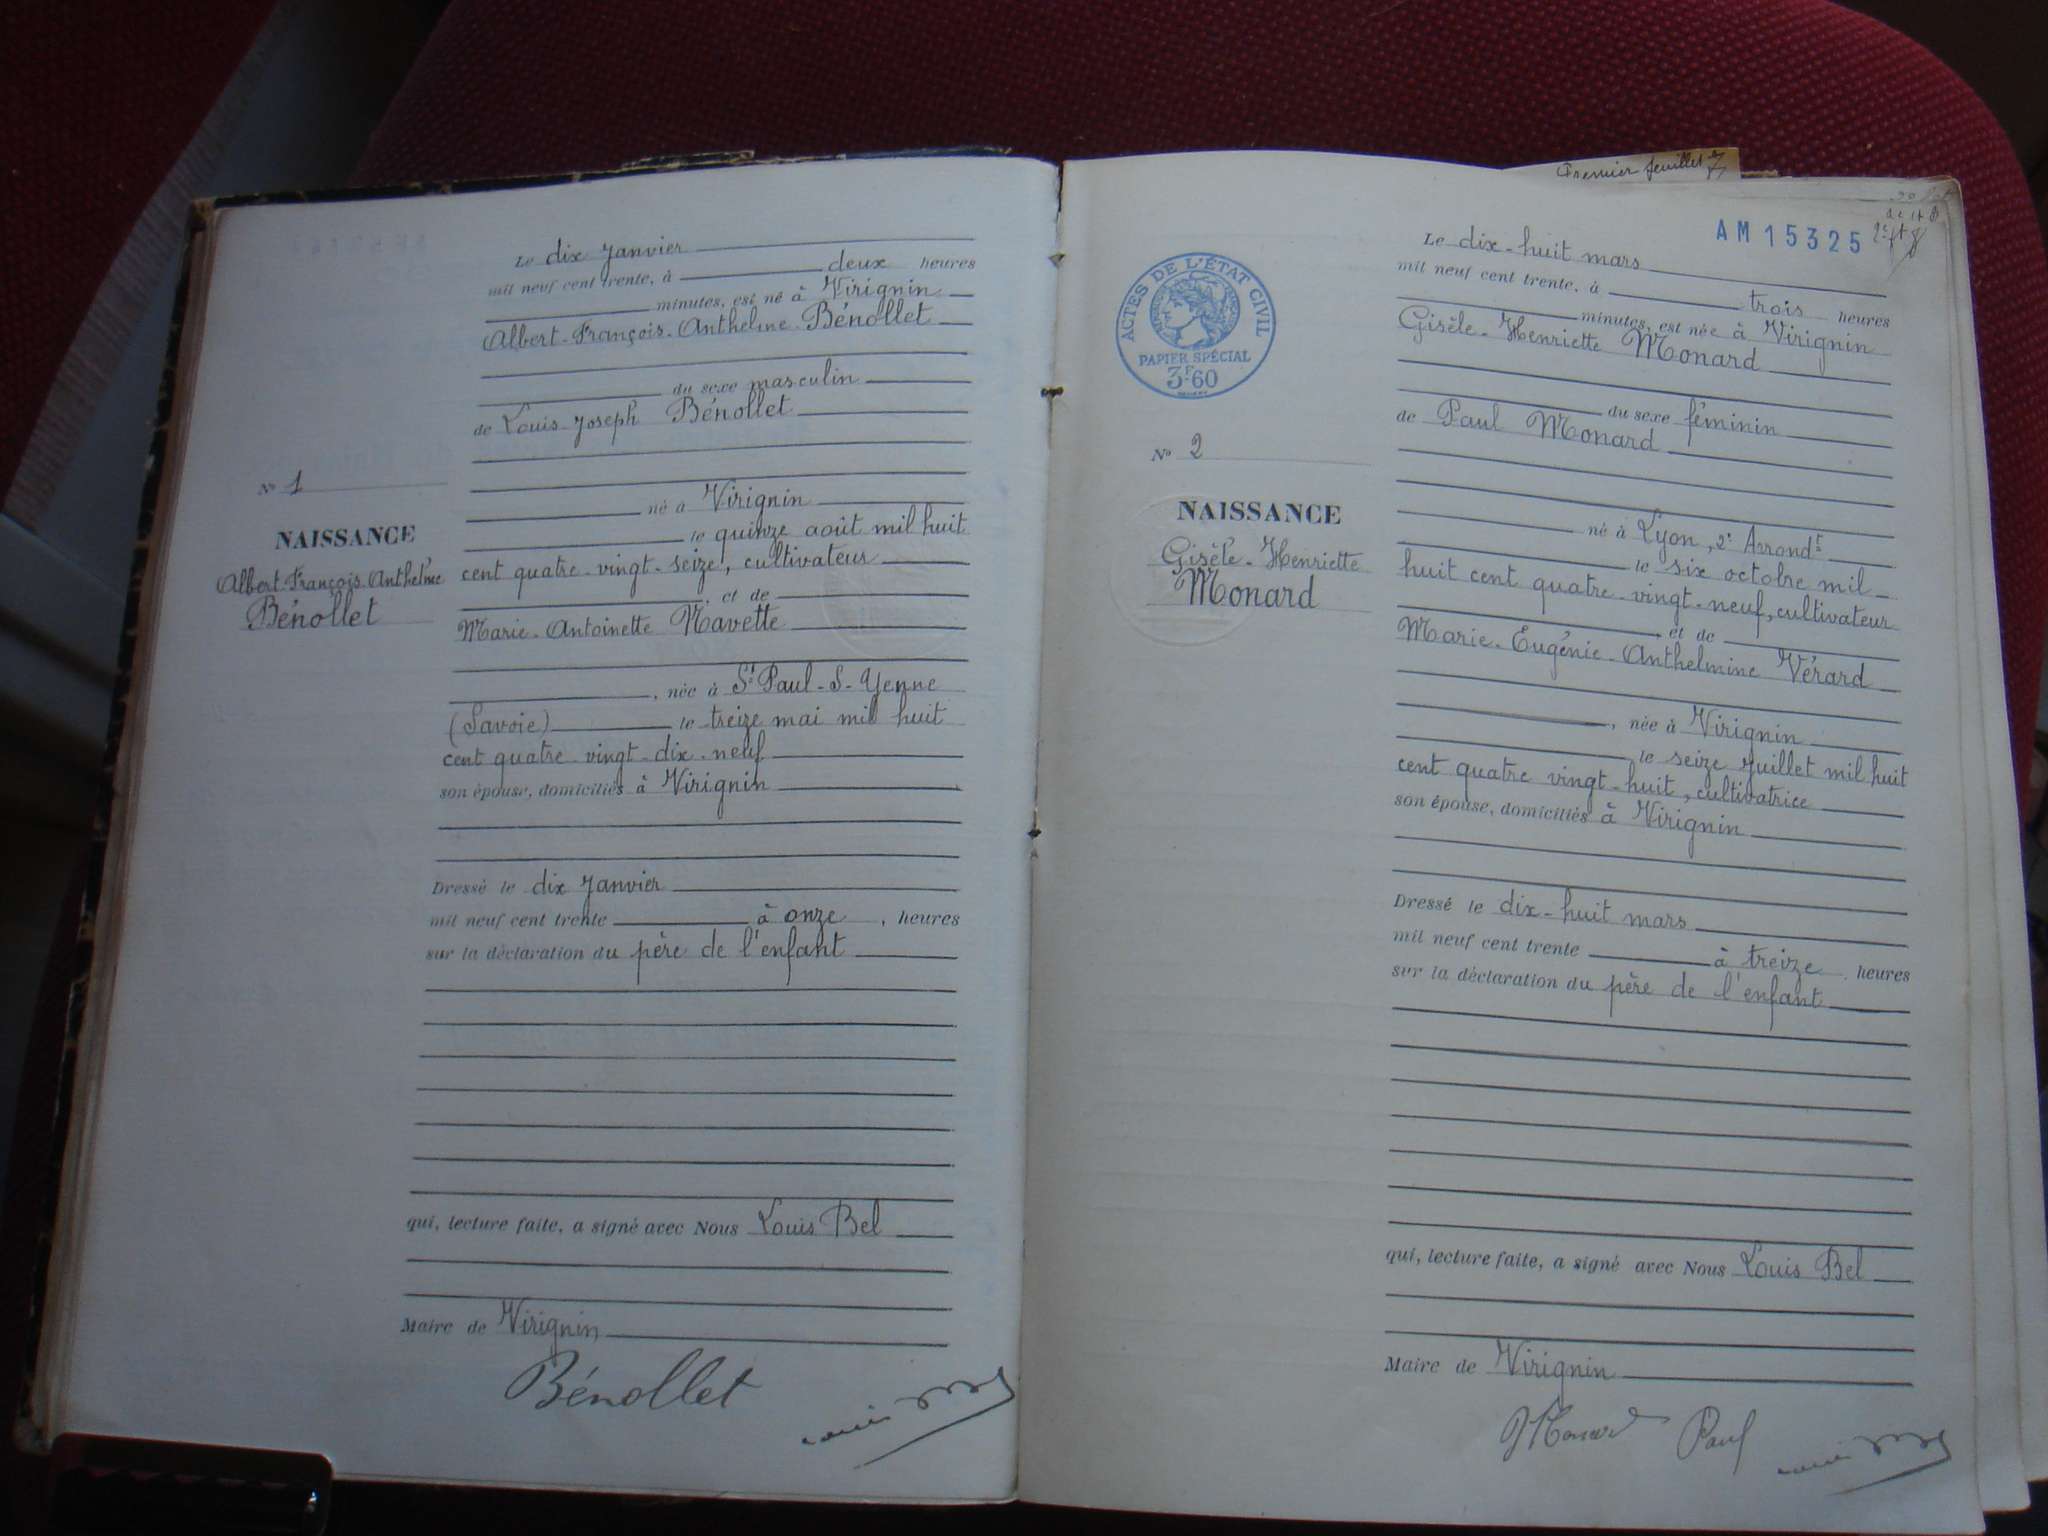 Le dix Janvier
mil neuf cent trente, à deux heures
minutes, est né à Virignin
Albert-François-Anthelme Bénollet
du sexe masculin
de Louis Joseph Bénollet
Nº 1
né à Virignin
NAISSANCE
le quinze août mil huit
Albert-François-Anthelme
cent quatre-vingt-seize, cultivateur
Bénollet
, et de
Marie-Antoinette Navette
, née à St Paul-S-Yenne
(Savoie) le treize mai mil huit
cent quatre-vingt-dix-neuf
son épouse, domiciliés à Virignin
Dressé le dix Janvier
mil neuf cent trente à onze, heures
sur la déclaration du père de l'enfant
qui, lecture faite, a signé avec Nous Louis Bel
Maire de Virignin
Bénollet
Premier feuillet
AM 15325
ACTES DE L'ÉTAT CIVIL
PAPIER SPÉCIAL
3F60
Le dix-huit mars
mil neuf cent trente, à trois heures
minutes, est née à Virignin
Gisèle-Henriette Monard
du sexe féminin
de Paul Monard
Nº 2
né à Lyon, 2e Arrondt
NAISSANCE
le six octobre mil
Gisèle-Henriette
huit cent quatre-vingt-neuf, cultivateur
Monard
, et de
Marie-Eugénie-Anthelmine Vérard
, née à Virignin
le seize Juillet mil huit
cent quatre vingt-huit, cultivatrice
son épouse, domiciliés à Virignin
Dressé le dix-huit mars
mil neuf cent trente à treize, heures
sur la déclaration du père de l'enfant
qui, lecture faite, a signé avec Nous Louis Bel
Maire de Virignin
Monard Paul